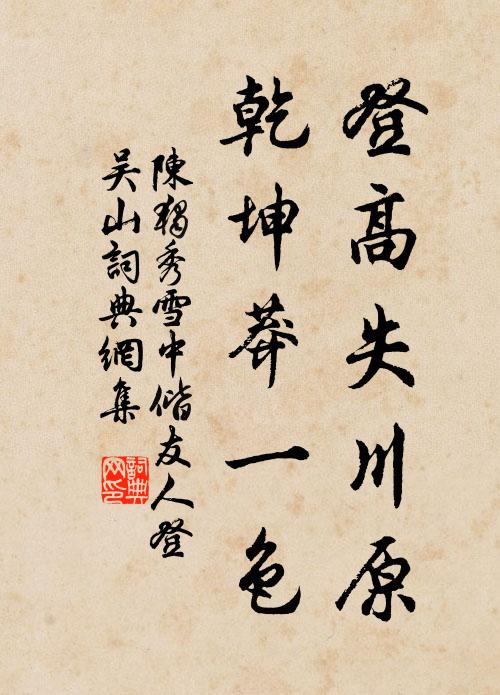 登高失川原
乾坤莽一色
陳獨秀雪中偕友人登
吴山詞典網集
詞典
网印